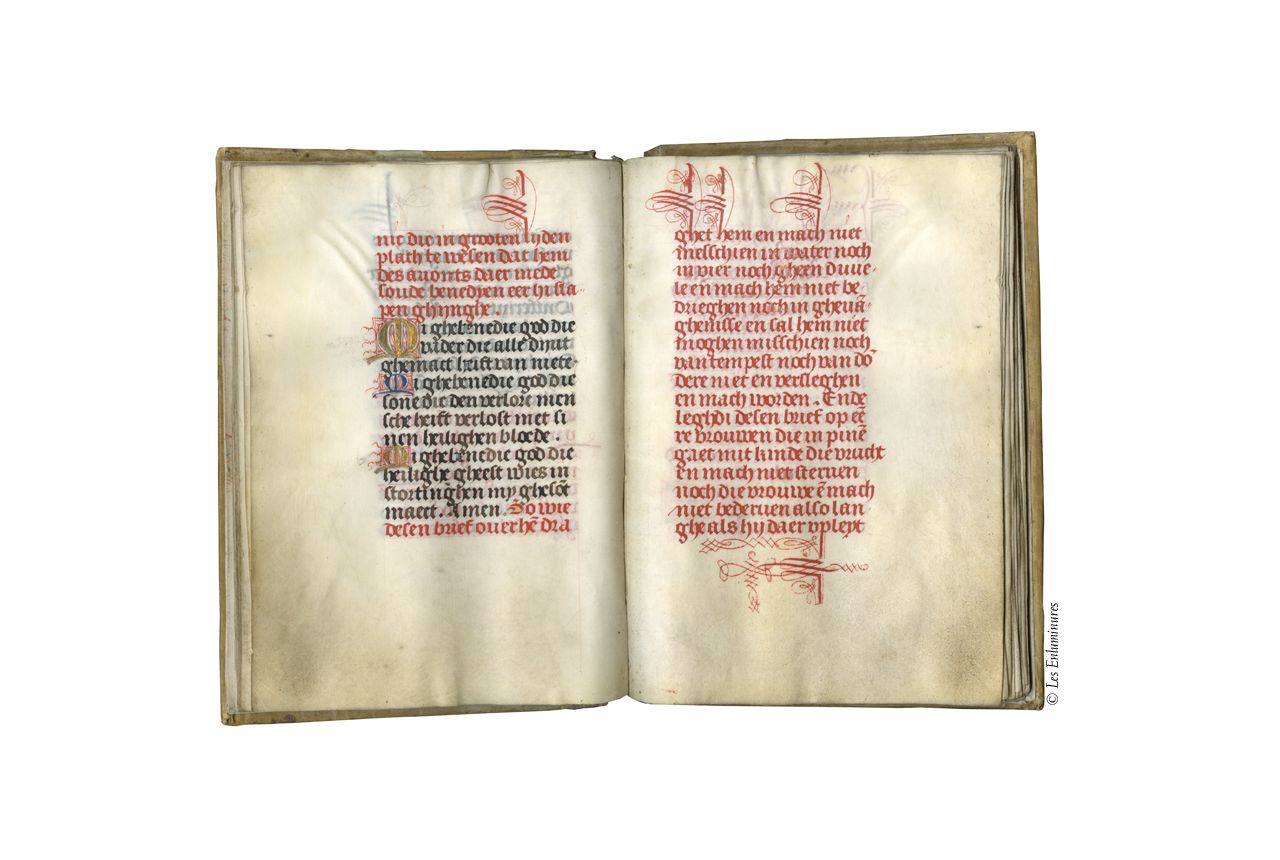 nic die in grooten lyden
plach te wesen dat hem
des auonts daer mede
soude benedyen eer hi sla-
pen ghinghe.
Mi ghebenedie god die
vader die alle dynt
ghemaect heift van niete-
Mi ghebenedie god die
sone die den verlorē men
sche heift verlost met si
nen heilighen bloede.
Mi ghebenedie god die
heilighe gheest wies in
stortinghen my ghesōt
maect. Amen. So wie
desen brief ouer hē dra
ghet hem en mach niet
messchien in water noch
in vier noch gheen duue-
le en mach hem niet be-
drieghen noch in gheuā-
ghenisse en sal hem niet
moghen misschien noch
van tempest noch van dō
dere niet en versleghen
en mach worden. Ende
leghdi desen brief op eē
re vrouwen die in pinē
gaet mit kinde die vrucht
en mach niet steruen
noch die vrouwe ē mach
niet bederuen also lan
ghe als hij daer vpleyt
© Les Enluminures